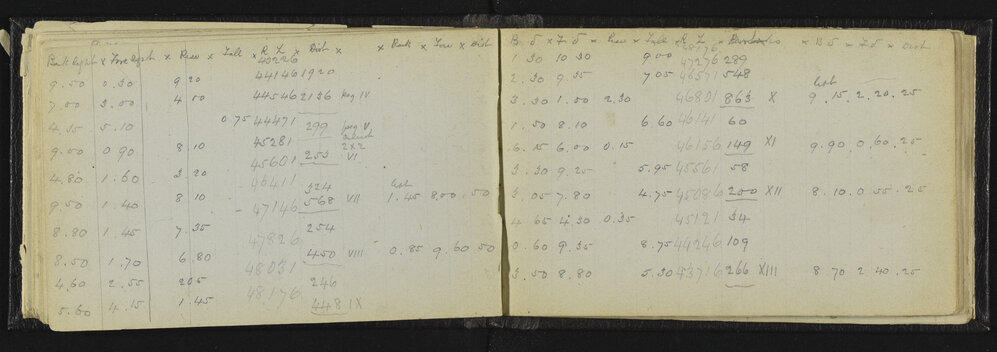 Back sight x Fore sight x Rise x Fall x R L x Dist x x Back x Fore x Dist
40226
9.50 0.30 9 20 44146 1920
7.00 3.00 4 00 44546 2136 peg IV
4.35 5.10 0 75 44471 299 peg V
9.00 0 90 8 10 45281 2x2
4.80 1.60 3 20 45601 253 VI
9.50 1.40 8 10 46411 324
8.80 1.45 7.35 47146 568 VII 1.45 8.00 .50
8.50 1.70 6.80 47826 254
4.60 2.55 205 48031 450 VIII 0.85 9.60 50
5.60 4.15 1.45 48176 246
448 IX
B. S x F. S x Rise x Fall x R L x x B S x F S x Dist
48176
1 30 10 30 900 47276 289
2.30 9.35 7 05 46571 548
3.30 1.00 2.30 46801 863 X 9.15.2.20.25
1.50 8.10 6.60 46141 60
6.15 6.00 0.15 46156 149 XI 9.90.0.60.25
3.30 9.25 5.95 45561 58
3.05 7.80 4.75 45086 250 XII 8.10.0 55.25
4 65 4.30 0.35 45121 34
0.60 9.35 8.75 44246 109
3.50 8.80 5.30 43716 266 XIII 8.70 2 40.25